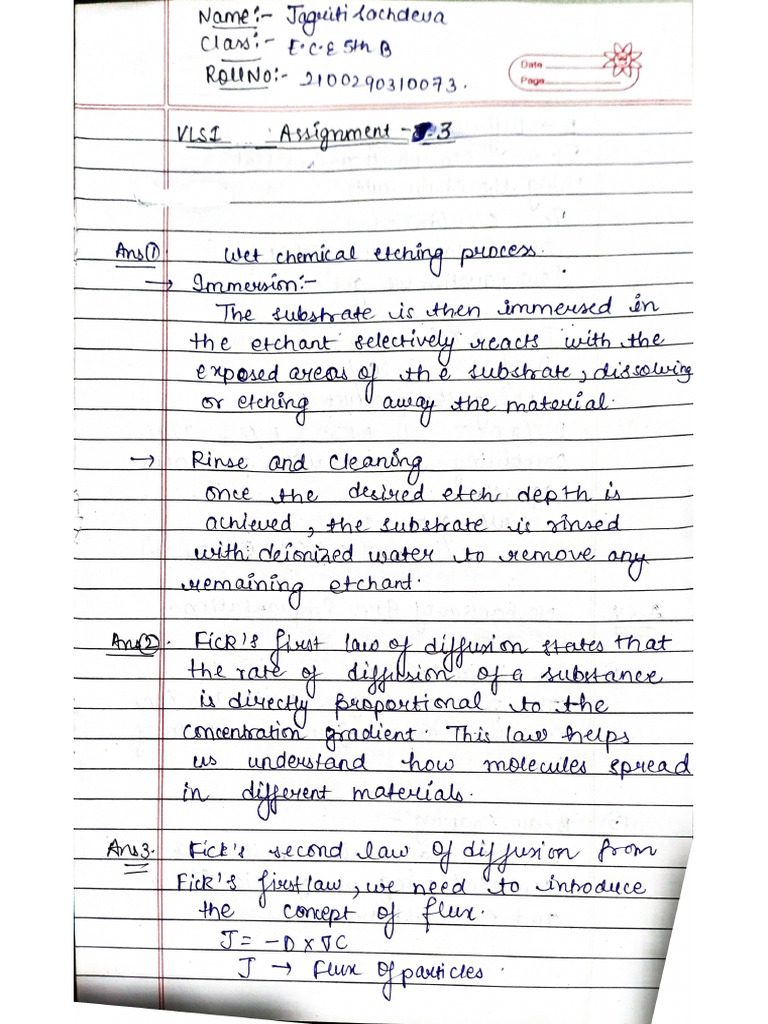 Name:- Jagriti Sachdeva
Class:- E.C.E 5th B
ROllNO:- 2100290310073.
Date
Page
VLSI : Assignment - 3
Ans① Wet chemical etching process.
→ Immersion:-
The substrate is then immersed in
the etchant selectively reacts with the
exposed areas of the substrate, dissolving
or etching away the material.
→ Rinse and Cleaning
once the desired etch depth is
achieved, the substrate is rinsed
with deionized water to remove any
remaining etchant.
Ans②. Fick's first law of diffusion states that
the rate of diffusion of a substance
is directly proportional to the
concentration gradient. This law helps
us understand how molecules spread
in different materials.
Ans3. Fick's second law of diffusion from
Fick's first law, we need to introduce
the concept of flux.
J = -D × ∇C
J → flux of particles.